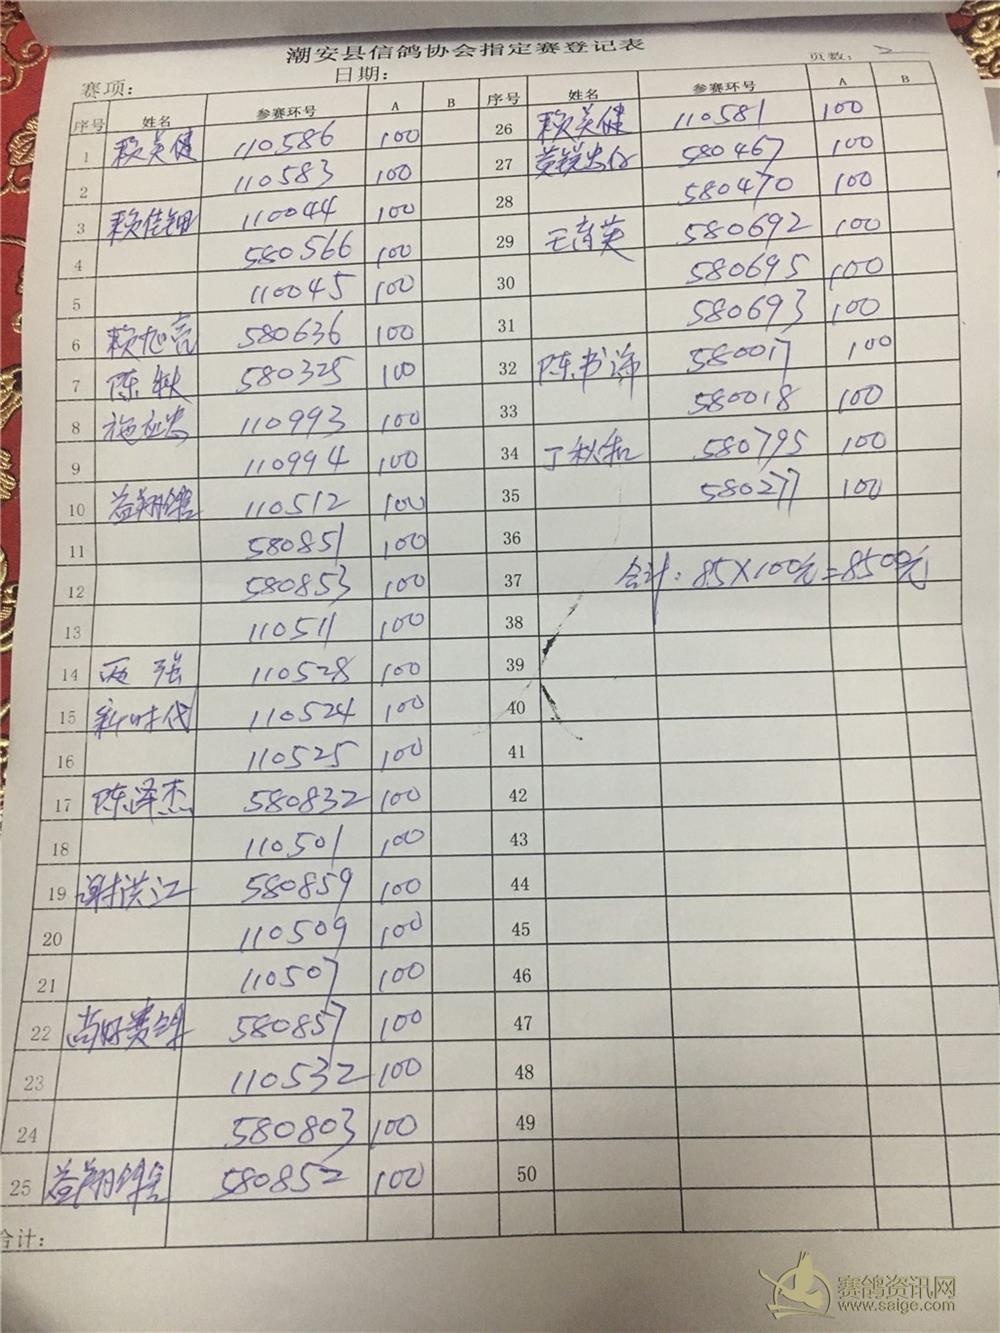 潮安县信鸽协会指定赛登记表
赛项: 日期: 页数: 2
序号 姓名 参赛环号 A B 序号 姓名 参赛环号 A B
1 赖英健 110586 100 26 赖英健 110581 100
2 110583 100 27 580467 100
3 赖佳钿 110044 100 28 580470 100
4 580566 100 29 王育英 580692 100
5 110045 100 30 580695 100
6 赖旭亮 580636 100 31 580693 100
7 陈 580325 100 32 陈书 580017 100
8 施 110993 100 33 580018 100
9 110994 100 34 丁秋和 580795 100
10 益翔鸽舍 110512 100 35 580277 100
11 580851 100 36
12 580853 100 37 合计: 85×100元=8500元
13 110511 100 38
14 西 强 110528 100 39
15 新时代 110524 100 40
16 110525 100 41
17 陈泽杰 580832 100 42
18 110501 100 43
19 谢洪江 580859 100 44
20 110509 100 45
21 110507 100 46
22 尚好赛鸽 580857 100 47
23 110532 100 48
24 580803 100 49
25 益翔鸽舍 580852 100 50
合计:
赛鸽资讯网
www.saige.com